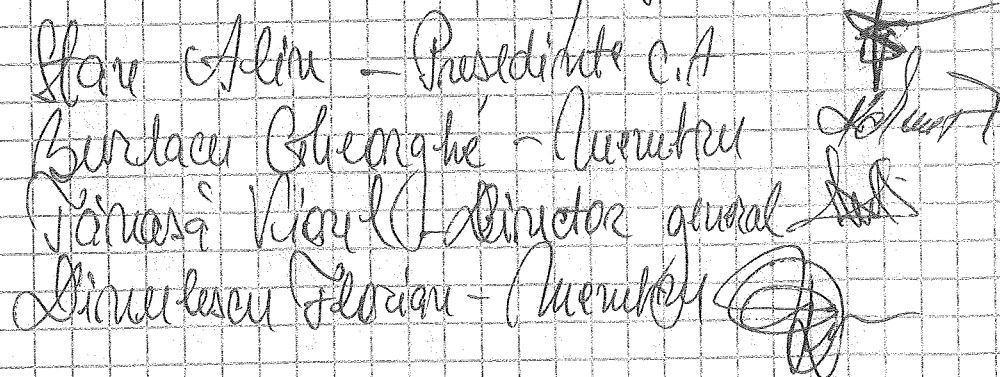 Stan Alin - Presedinte C.A
Burlacu Gheorghe - Membru
Tănasă Viorel - Director general
Dinulescu Florian - Membru